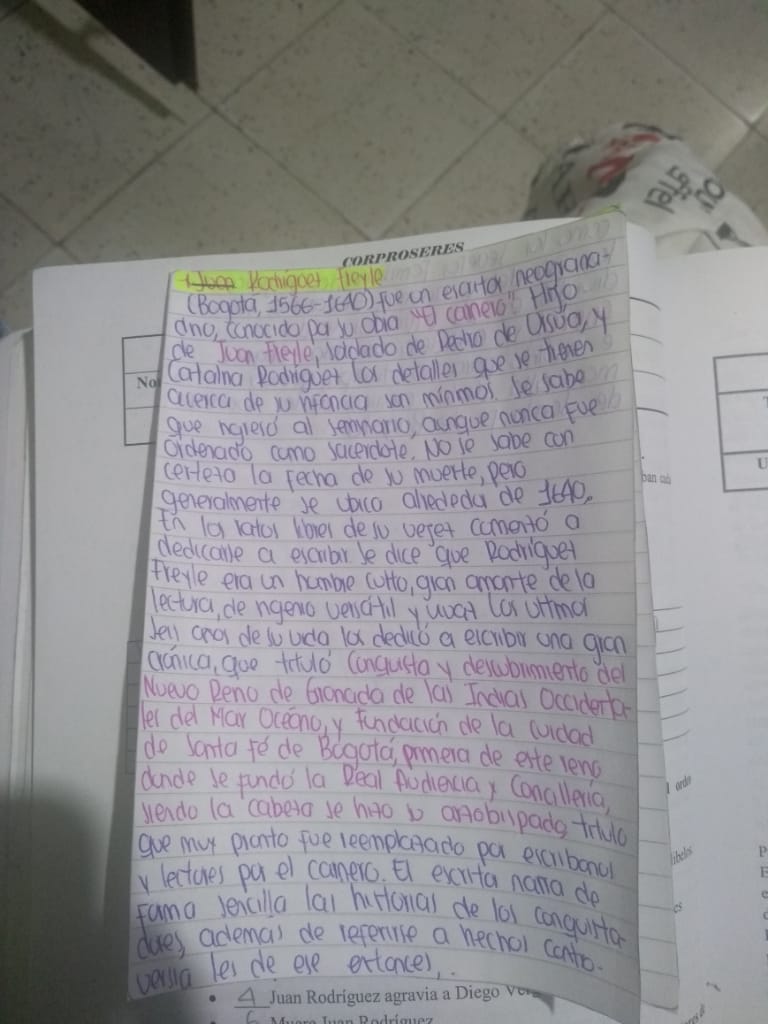 CORPROSERES
Juan Rodríguez Freyle
(Bogotá, 1566-1640) fue un escritor neograna-
dino, conocido por su obra "El carnero". Hijo
de Juan Freyle, soldado de Pedro de Ursúa, y
Catalina Rodríguez los detalles que se tienen
acerca de su infancia son mínimos. Se sabe
que ingresó al seminario, aunque nunca fue
ordenado como sacerdote. No se sabe con
certeza la fecha de su muerte, pero
generalmente se ubica alrededor de 1640.
En los ratos libres de su vejez comenzó a
dedicarse a escribir se dice que Rodríguez
Freyle era un hombre culto, gran amante de la
lectura, de ingenio versátil y vivaz los ultimos
seis años de su vida los dedicó a escribir una gran
crónica, que tituló Conquista y descubrimiento del
Nuevo Reino de Granada de las Indias Occidenta-
les del Mar Océano, y Fundación de la ciudad
de Santa fé de Bogotá, primera de este reino
donde se fundó la Real Audiencia y Cancillería,
siendo la cabeza se hizo su arzobispado, título
que muy pronto fue reemplazado por escribanos
y lectores por el carnero. El escrita narra de
forma sencilla las historias de los conquista-
dores, ademas de referirse a hechos contro-
versia les de ese entonces.
4 Juan Rodríguez agravia a Diego
6 Muere Juan Rodríguez